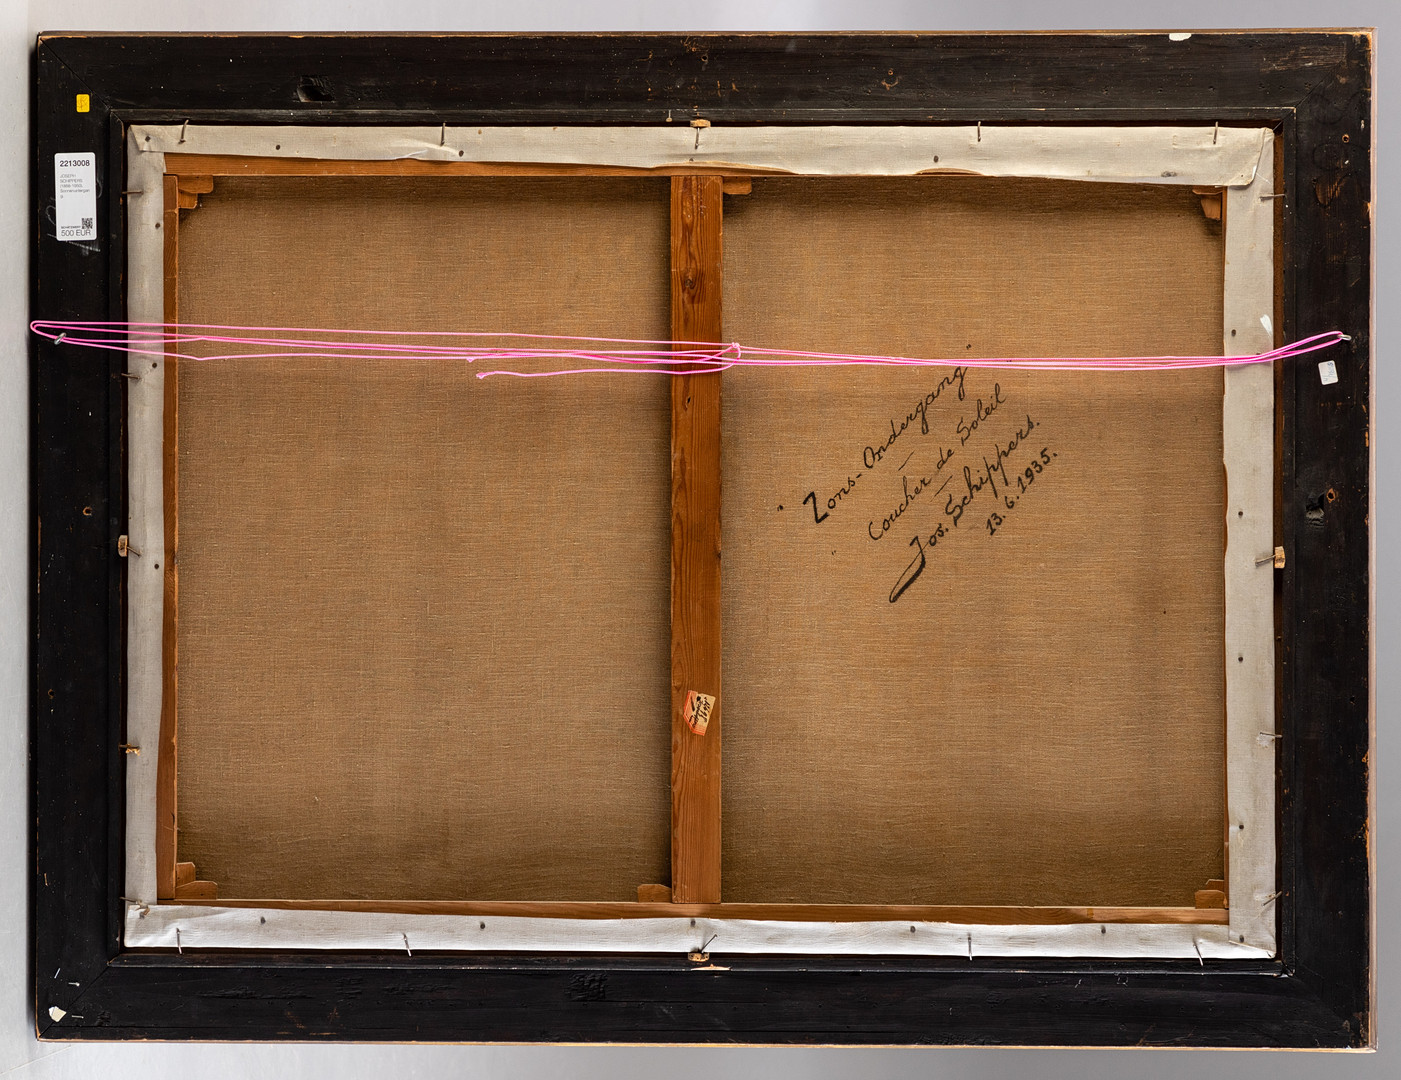 2213008
JOSEPH
SCHIPPERS
(1868-1950)
Sonnenuntergan
g
500 EUR
"Zons-Ondergang"
—
"Coucher de Soleil
—
Jos. Schippers.
13.6.1935.